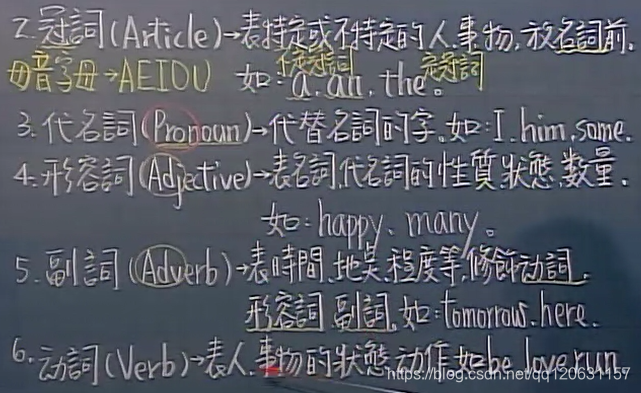 2.冠詞(Article)→表特定或不特定的人.事物.放名詞前.
母音字母→AEIOU 如:a.an.the。
不定冠詞 定冠詞
3.代名詞(Pronoun)→代替名詞的字.如:I.him.some.
4.形容詞(Adjective)→表名詞.代名詞的性質.狀態.數量.
如:happy.many。
5.副詞(Adverb)→表時間.地点.程度等,修飾动詞.
形容詞.副詞.如:tomorrow.here.
6.动詞(Verb)→表人.事物的狀態动作如be.love.run
https://blog.csdn.net/qq120631157